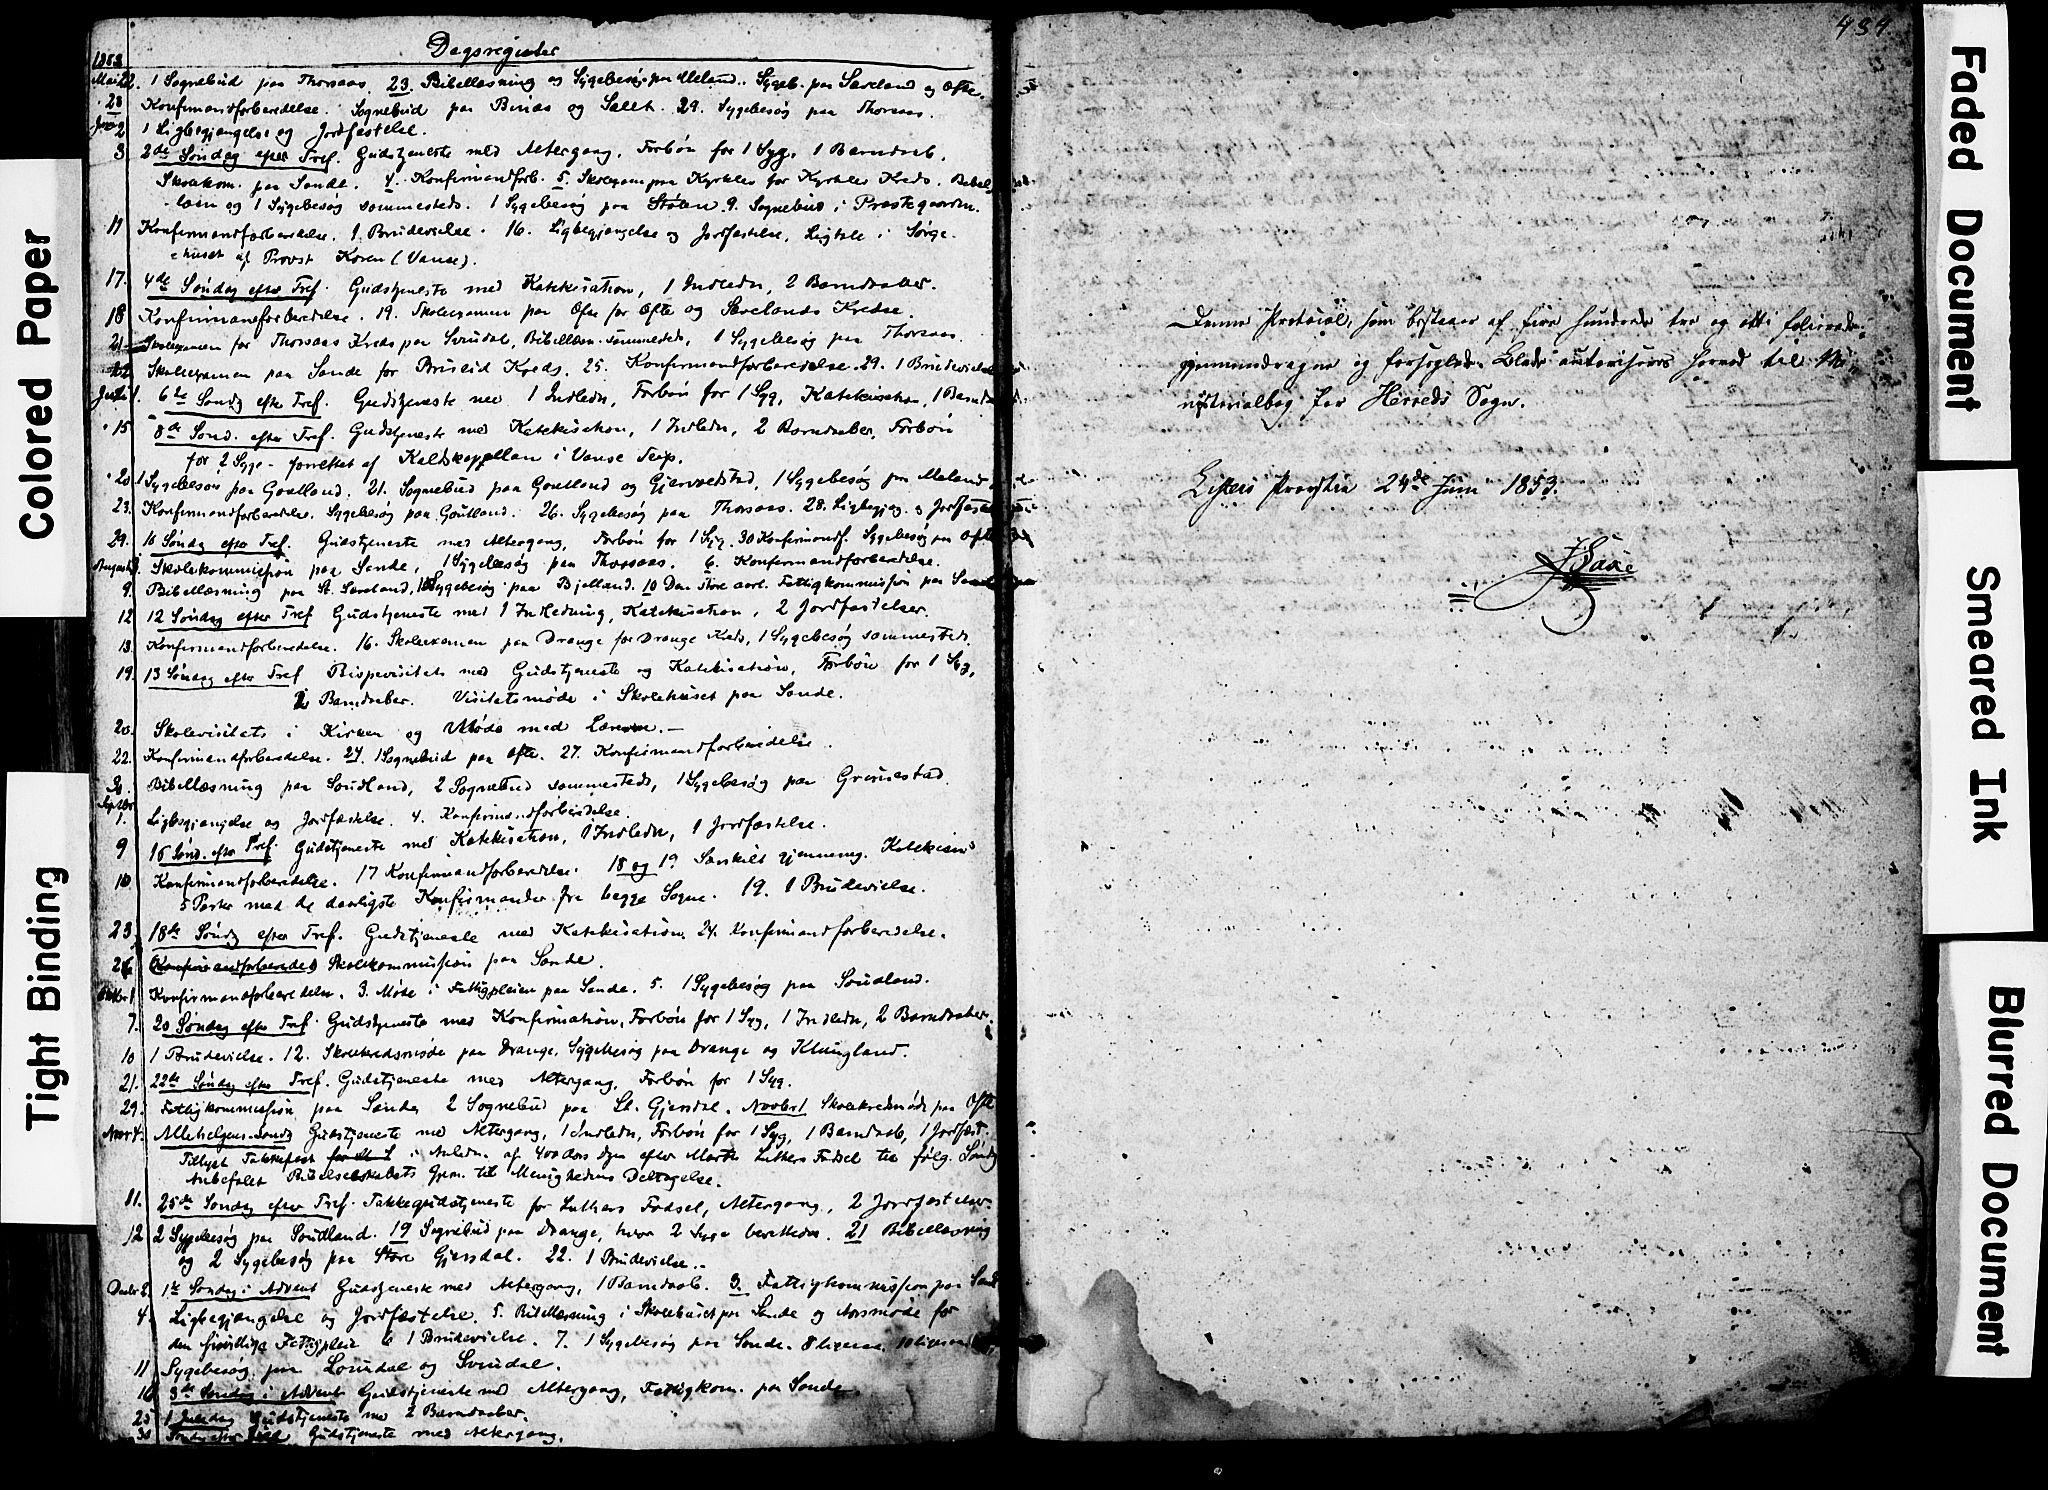 Dagsregister
1883
Mai 22. 1 Sognebud paa Thorsaas. 23. Bibellæsning og Sygebesøg paa Meland. Sygeb. paa Sæveland og Ofte.
28 Konfirmandforberedelse. Sognebud paa Birias og 29. Sygebesøg paa Thorsaas.
Juni 2 1 Ligbegjængelse og Jordfæstelse.
3 2de Søndag efter Tref. Gudstjeneste med Altergang, Forbøn for 1 Syg, 1 Barndaab.
Skolekom. paa Sande. 4. Konfirmandforb. 5. Skolexam paa Kyrkles for Kyrkles Kreds. Bibel-
læsn og 1 Sygebesøg sammesteds. 1 Sygebesøg paa Støle. 9. Sognebud i Præstegaarden.
11 Konfirmandforberedelse. 1 Brudevielse. 16. Ligbegjængelse og Jordfæstelse, Ligtale i Sørge-
huset af Provst Koren (Vanse).
17. 4de Søndag efter Tref. Gudstjeneste med Katekisation, 1 Indledn, 2 Barndaaber.
18 Konfirmandforberedelse. 19. Skolexamen paa Ofte for Ofte og Sævelands Kredse.
21 Skolexamen for Thorsaas Kreds paa Svindal, Bibellæsn sammesteds, 1 Sygebesøg paa Thorsaas.
22 Skolexamen paa Sande for Briseid Kreds. 25. Konfirmandforberedelse. 29. 1 Brudevielse
Juli 1. 6te Søndg efter Tref. Gudstjeneste med 1 Indledn, Forbøn for 1 Syg, Katekisation, 1 Barndaab.
15 8de Sønd. efter Tref. Gudstjeneste med Katekisation, 1 Indledn, 2 Barndaaber, Forbøn
for 2 Syge - forrettet af Kaldskapellan i Vanse
20. 1 Sygebesøg paa Goutland. 21. Sognebud paa Goutland og Gjervoldstad, 1 Sygebesøg paa Meland
23. Konfirmandforberedelse, Sygebesøg paa Goutland. 26. Sygebesøg paa Thorsaas. 28. Ligbegjæng. og Jordfæstelse
29. 10 Søndag efter Tref. Gudstjeneste med Altergang, Forbøn for 1 Syg. 30 Konfirmandf. Sygebesøg paa Ofte
August Skolekommission paa Sande, 1 Sygebesøg paa Thorsaas. 6. Konfirmandforberedelse.
9. Bibellæsning paa St. Sæveland, Sygebesøg paa Bjelland. 10 Den store aarl. Fattigkommission paa Sande
12 12 Søndag efter Tref Gudstjeneste med 1 Indledning, Katekisation, 2 Jordfæstelser.
13. Konfirmandforberedelse. 16. Skolexamen paa Drange for Drange Kreds, 1 Sygebesøg sammesteds.
19. 13 Søndag efter Tref Bispevisitats med Gudstjeneste og Katekisation, Forbøn for 1 Syg,
2 Barndaaber. Visitatsmøde i Skolehuset paa Sande.
20. Skolevisitats i Kirken og Møde med Lærerne. -
22. Konfirmandforberedelse. 24. 1 Sognebud paa Ofte. 27. Konfirmandforberedelse.
30. Bibellæsning paa Soudland, 2 Sognebud sammesteds, 1 Sygebesøg paa Grønestad.
September 1. Ligbegjængelse og Jordfæstelse. 4. Konfirmandforberedelse.
9 16 Sønd. efter Tref. Gudstjeneste med Katekisation, 1 Indledn, 1 Jordfæstelse.
10 Konfirmandforberedelse. 17 Konfirmandforberedelse. 18 og 19 Særskilt gjennemg. Katekism's
5 Parter med de daarligste Konfirmander fra begge Sogne. 19. 1 Brudevielse.
23. 18de Søndg efter Tref. Gudstjeneste med Katekisation. 24. Konfirmandforberedelse.
26 Konfirmandforberedels Skolekommission paa Sande.
Oktbr 1 Konfirmandforberedelse. 3. Møde i Fattigpleien paa Sande. 5. 1 Sygebesøg paa Soudland.
7. 20 Søndag efter Tref. Gudstjeneste med Konfirmation, Forbøn for 1 Syg, 1 Indledn, 2 Barndaaber.
10 1 Brudevielse. 12. Skolekredsmøde paa Drange, Sygebesøg paa Drange og Klungland.
21. 22de Søndag efter Tref. Gudstjeneste med Altergang, Forbøn for 1 Syg.
29. Fattigkommission paa Sande 2 Sognebud paa Lt. Gjersdal. Novbr 1 Skolekredsmøde paa Ofte
Novr 4. Allehelgens-Søndg Gudstjeneste med Altergang, 1 Indledn, Forbøn for 1 Syg, 1 Barndaab, 1 Jordfæst.
Tillyst Takkefest i Anledn. af 400 Aars Dgen efter Martin Luthers Fødsel til følg. Søndg
Anbefalet Bibelselskabets Gjern. til Menighedens Deltagelse.
11. 25de Søndag efter Tref. Takkegudstjeneste for Luthers Fødsel, Altergang, 2 Jordfæstelser.
12 2 Sygebesøg paa Soudland. 19 Sognebud paa Drange, hvor 2 Syge berettedes. 21 Bibellæsning
og 2 Sygebesøg paa Store Gjersdal. 22. 1 Brudevielse.
Decbr 2. 1ste Søndag i Advent Gudstjeneste med Altergang, 1 Barndaab. 3. Fattigkommission paa Sande
4. Ligbegjængelse og Jordfæstelse. 5. Bibellæsning i Skolehuset paa Sande og Aarsmøde for
den frivillige Fattigpleie 6 1 Brudevielse. 7. 1 Sygebesøg paa Sande. 8 ligesaa. 10 ligesaa
11 Sygebesøg paa Loindal og Svindal.
16 3de Søndag i Advent Gudstjeneste med Altergang, Fattigkom. paa Sande
25 1 Juledag Gudstjeneste med 2 Barndaaber.
30 Søndag efter Jul Gudstjeneste med Altergang.
484
Denne Protocol, som bestaaer af fire hundrede tre og otti folierede
gjennemdragne og forseglede Blade autoriseres herved til Mi-
nisterialbog for Herreds Sogn.
Listers Provstie 24de Juni 1853.
Colored Paper
Tight Binding
Faded Document
Smeared Ink
Blurred Document